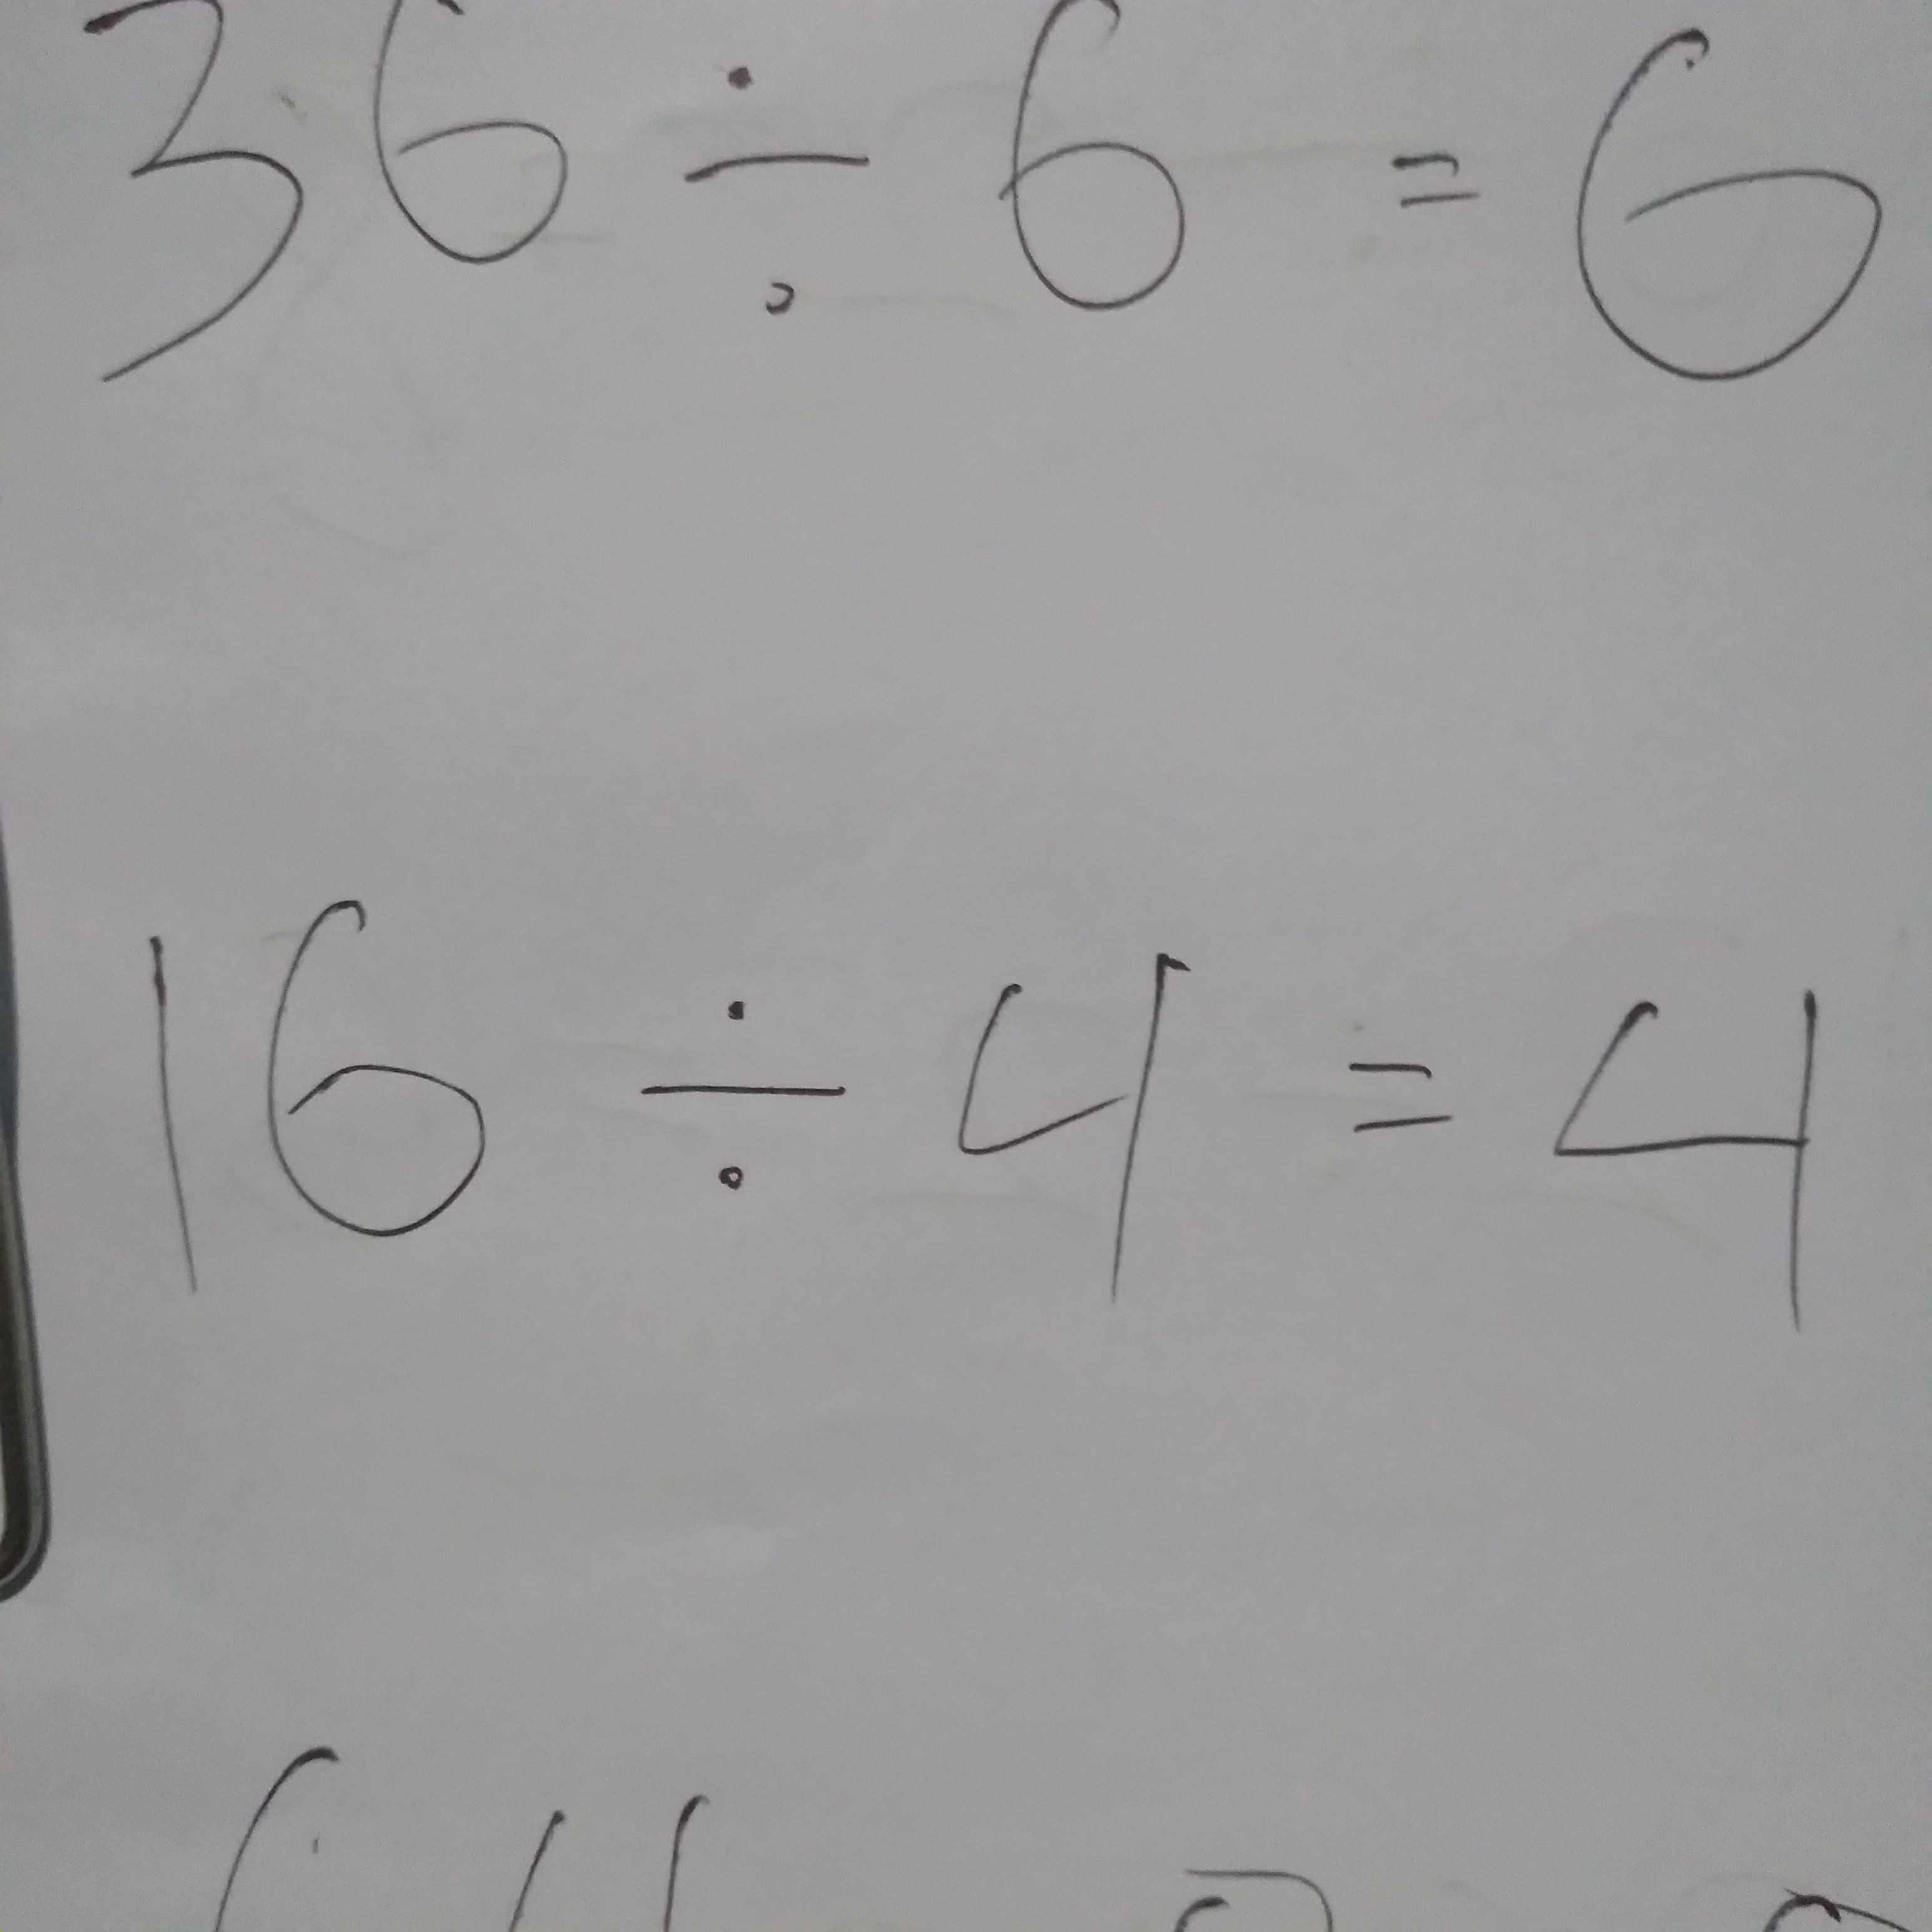 36 ÷ 6 = 6
16 ÷ 4 = 4